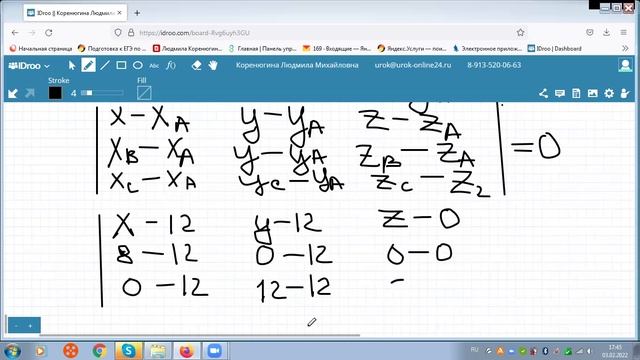 IDroo || Коренюгина Людмила
https://idroo.com/board-Rvg6uyh3GU
Начальная страница Подготовка к ЕГЭ по ... Людмила Коренюгин... Главная | Панель упр... 169 - Входящие — Ян... Яндекс.Услуги — поис... Электронное приложе... IDroo | Dashboard
IDroo Коренюгина Людмила Михайловна urok@urok-online24.ru 8-913-520-06-63
Stroke Fill
4
x-x_A y-y_A z-z_A
x_B-x_A y-y_A z_B-z_A =0
x_C-x_A y_C-y_A z_C-z_2
x-12 y-12 z-0
8-12 0-12 0-0
0-12 12-12 -
RU 17:45
03.02.2022